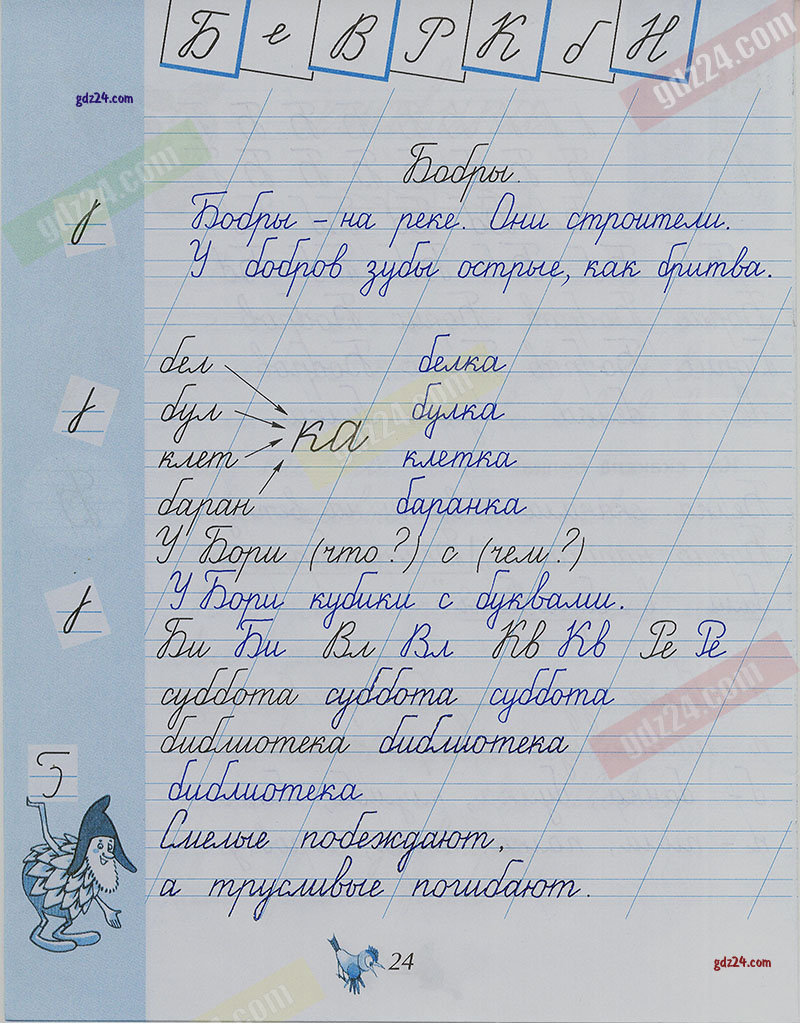 Б е В Р К б Н
gdz24.com
gdz24.com
gdz24.com
Бобры.
Бобры – на реке. Они строители.
У бобров зубы острые, как бритва.
бел белка
бул булка
ка
gdz24.com
клет клетка
баран баранка
У Бори (что?) с (чем?)
У Бори кубики с буквами.
Би Би Вл Вл Кв Кв Ре Ре
суббота суббота суббота
gdz24.com
библиотека библиотека
Б
библиотека
Смелые побеждают,
а трусливые погибают.
24
gdz24.com
gdz24.com